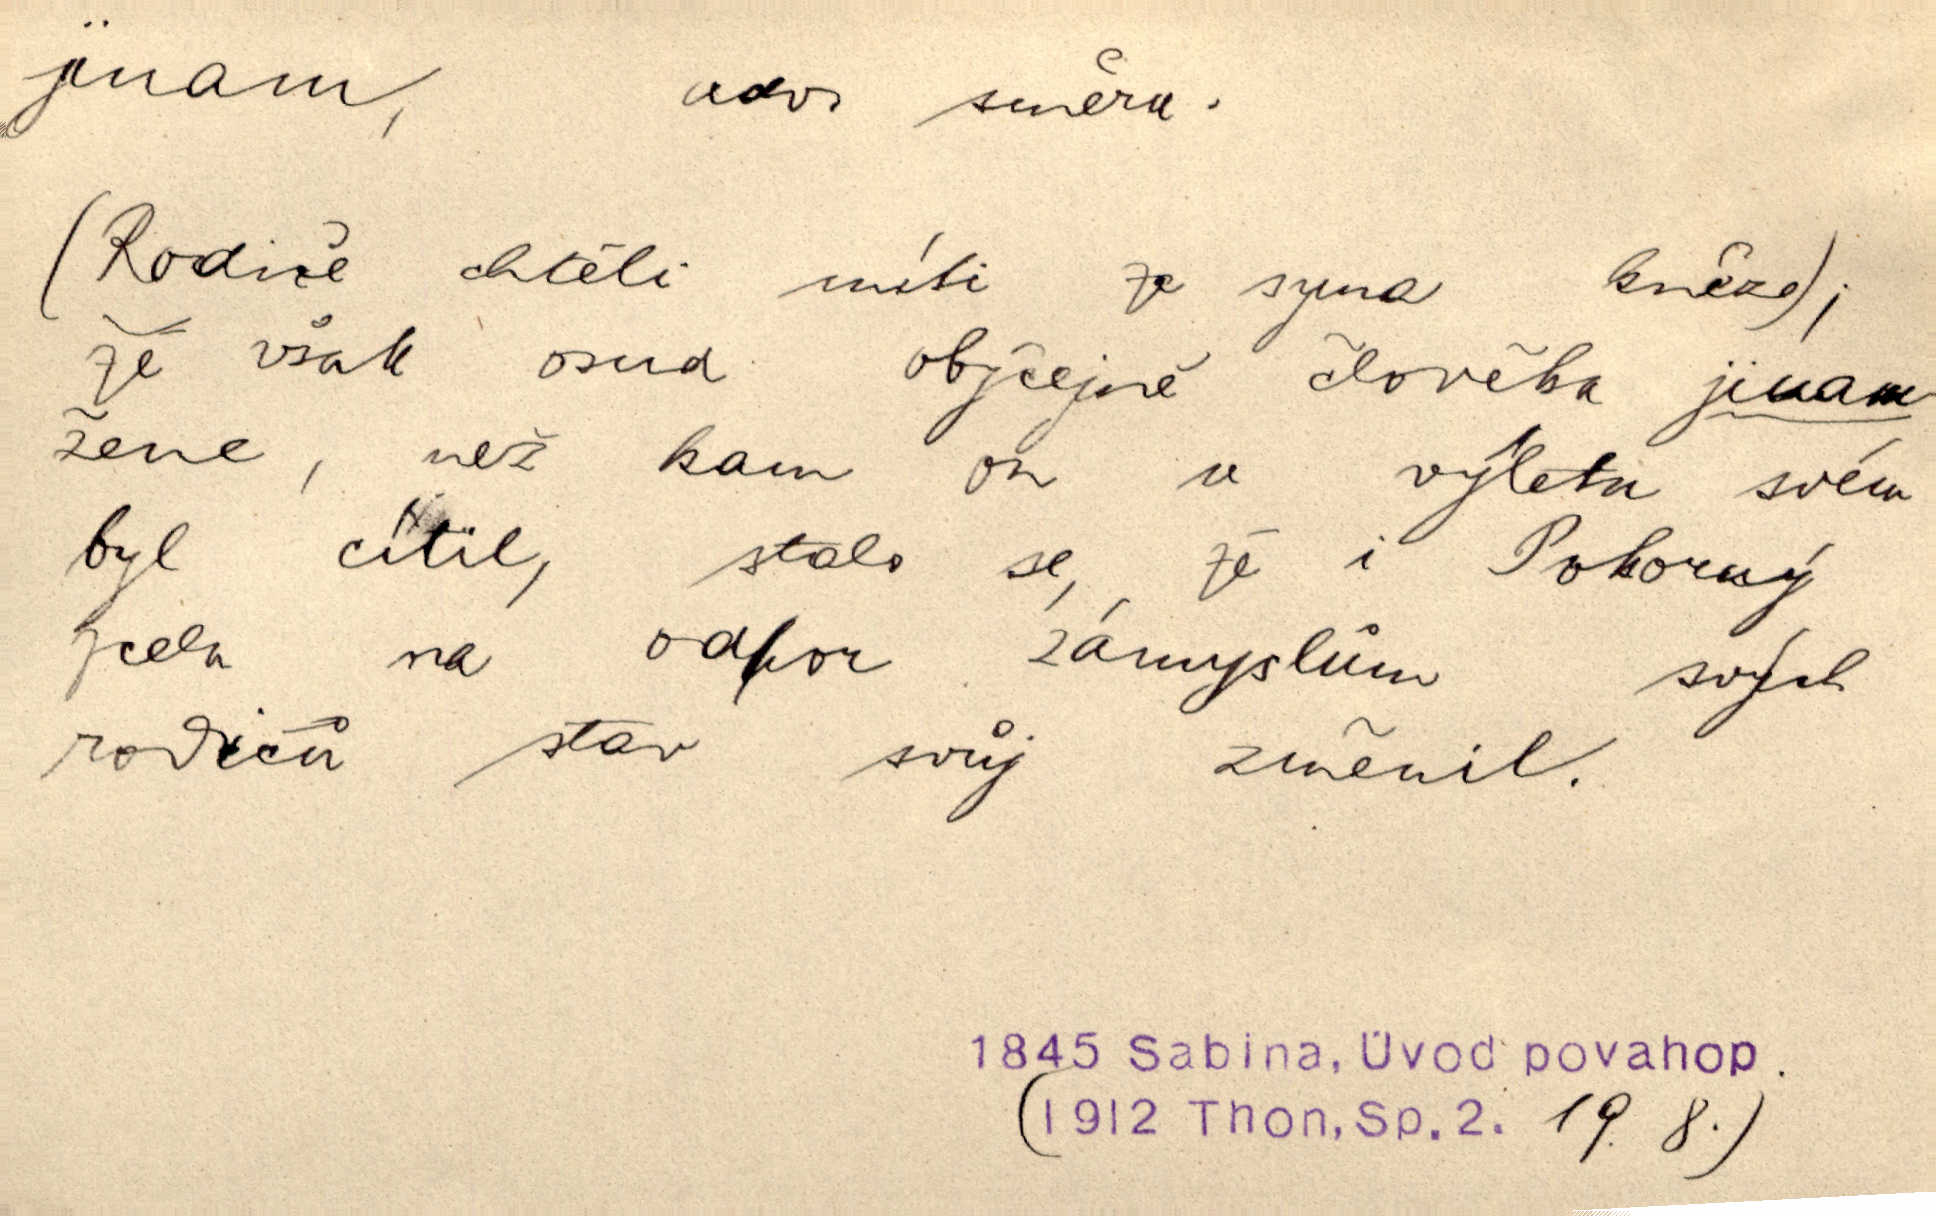 jinam, adv. směru.
(Rodiče chtěli míti ze syna kněze);
že však osud obyčejně člověka jinam
žene, než kam on u výletu svém
byl cítil, stalo se, že i Pokorný
zcela na odpor zámyslům svých
rodičů stav svůj změnil.
1845 Sabina, Úvod povahop.
(1912 Thon, Sp. 2. 19. 8.)